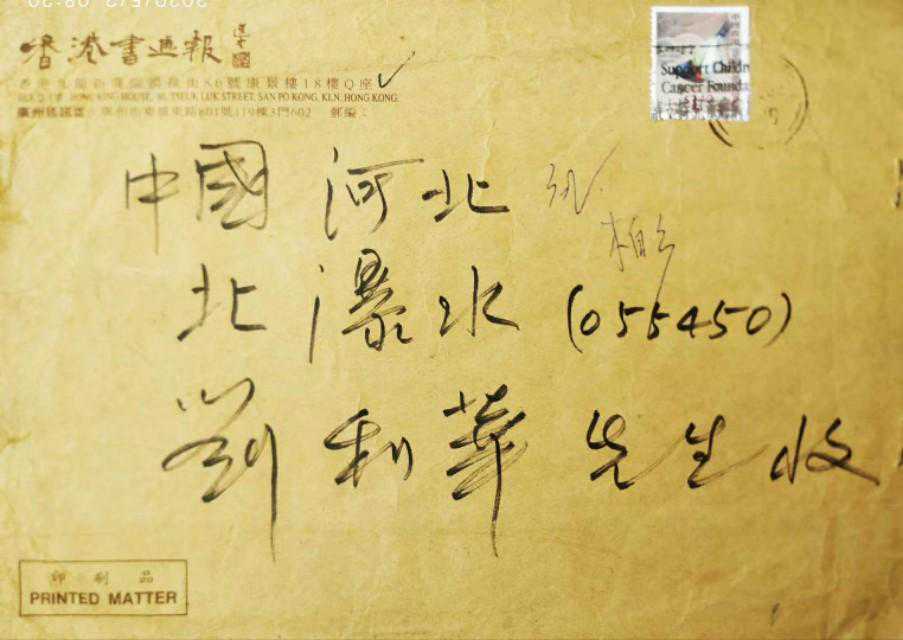 香港書通報
香港九龍新蒲崗爵祿街86號康景樓18樓Q座
HONG KING HOUSE, 86, TSEUK LUK STREET, SAN PO KONG, KLN. HONG KONG.
廣州 601號119棟3門602 郵編:
Support Childr
Cancer Founda
中國 河北
柏乡
北瀑水 (055450)
劉利華先生收
印刷品
PRINTED MATTER